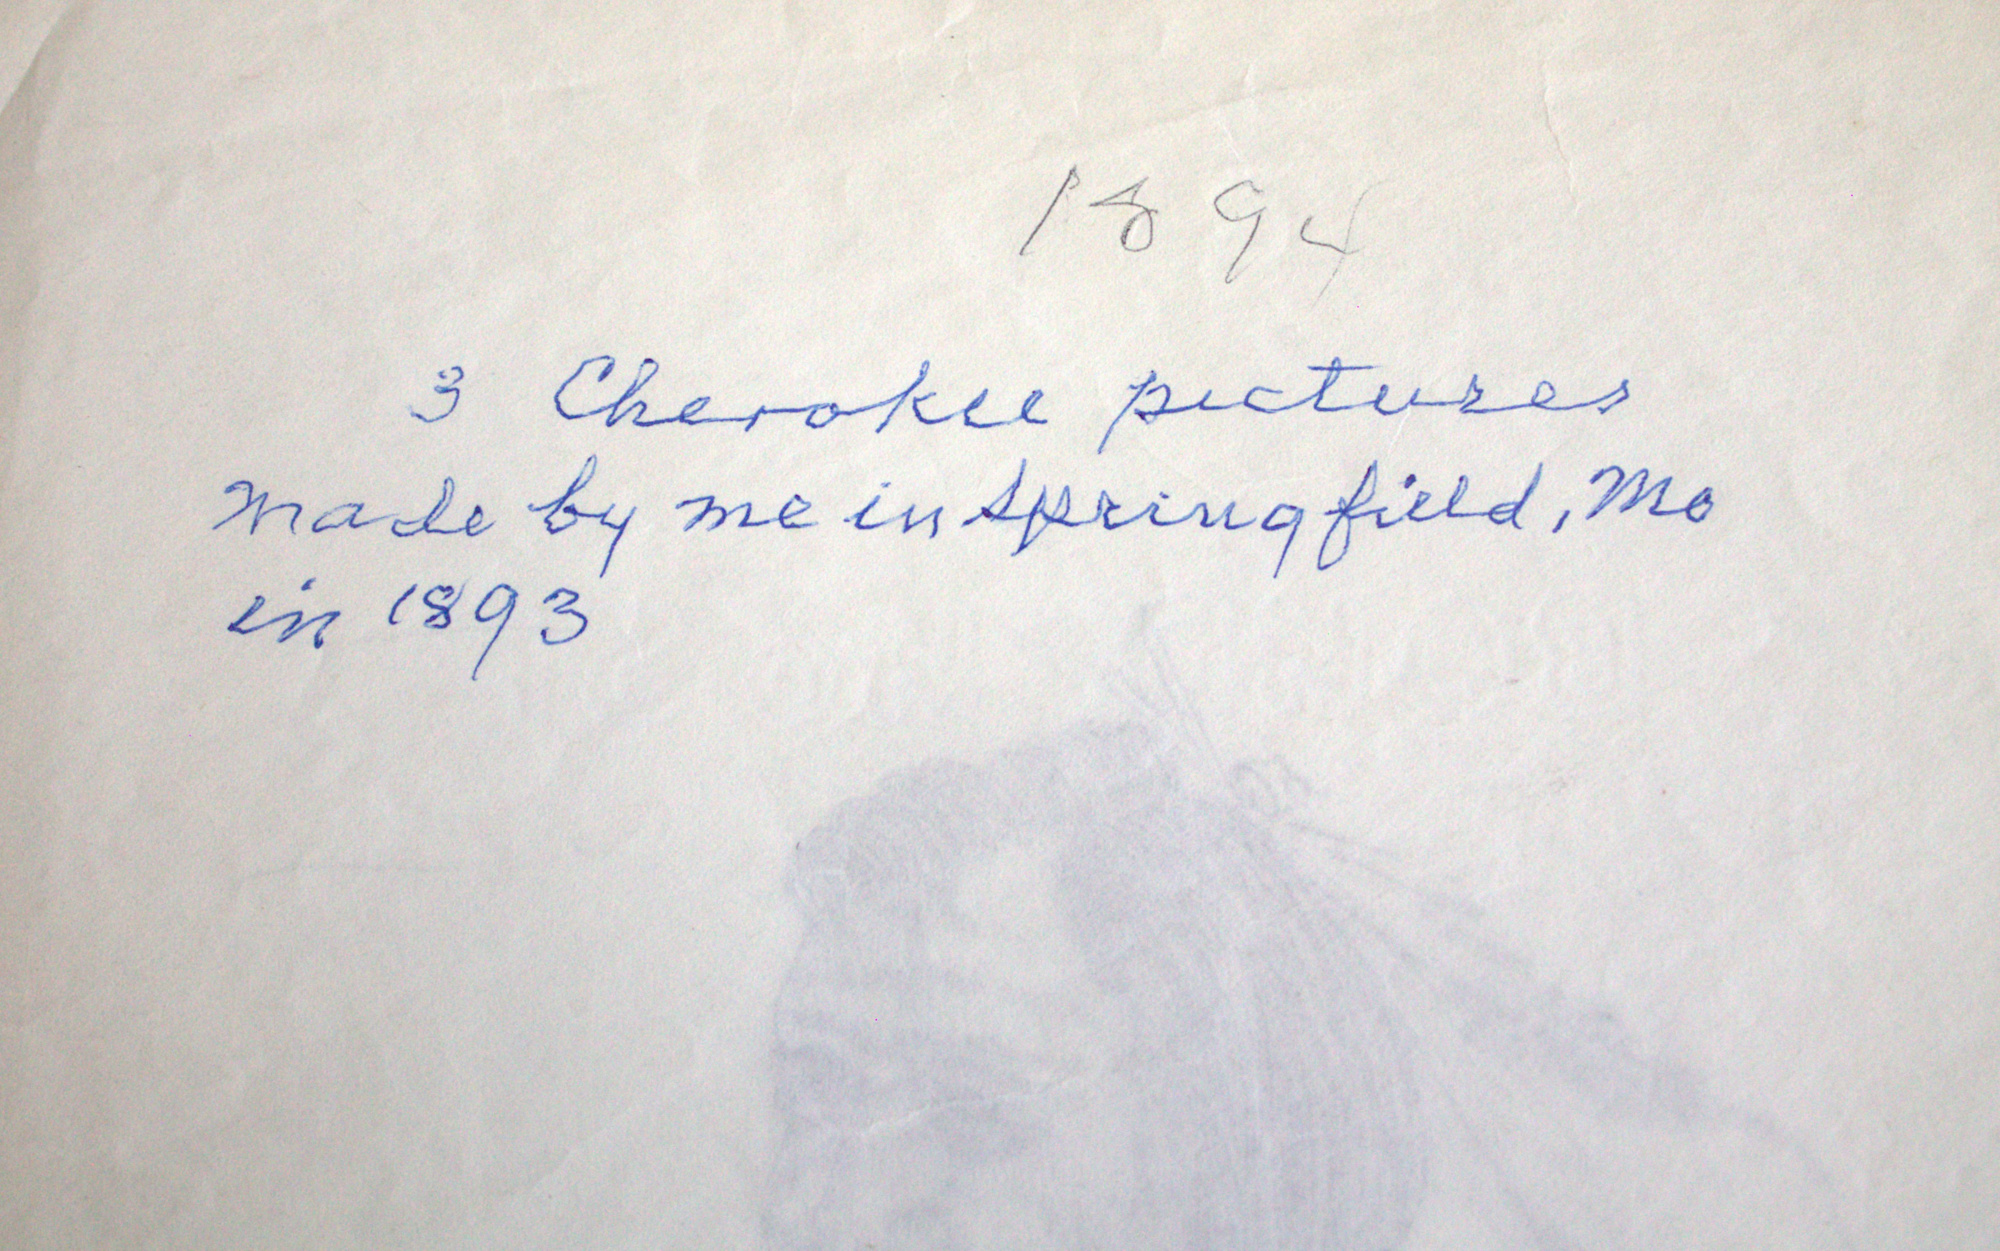 1894
3 Cherokee pictures
made by me in Springfield, Mo
in 1893